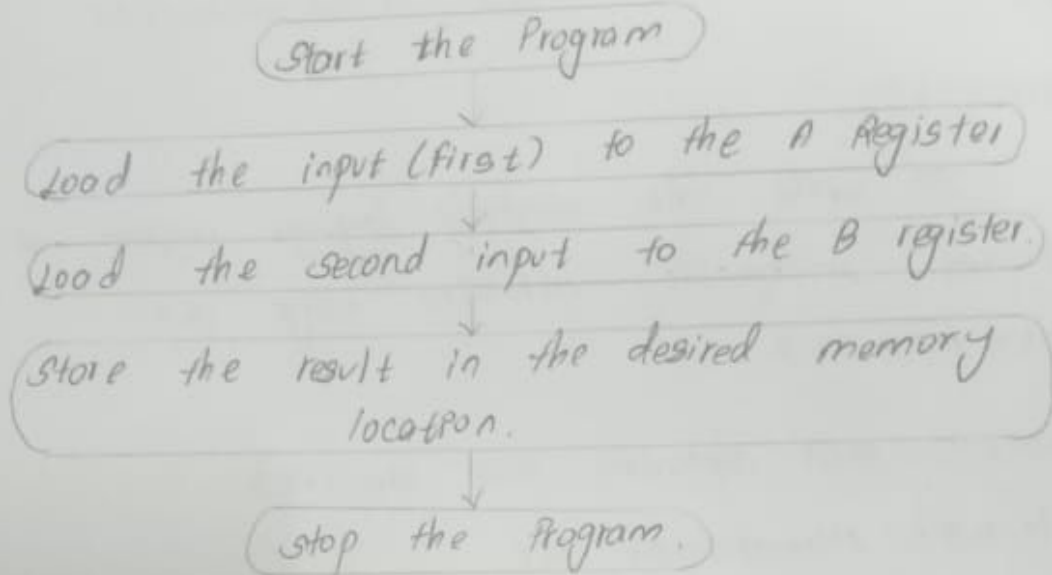 Start the Program
Load the input (first) to the A Register
Load the second input to the B register.
Store the result in the desired memory
location.
Stop the Program.